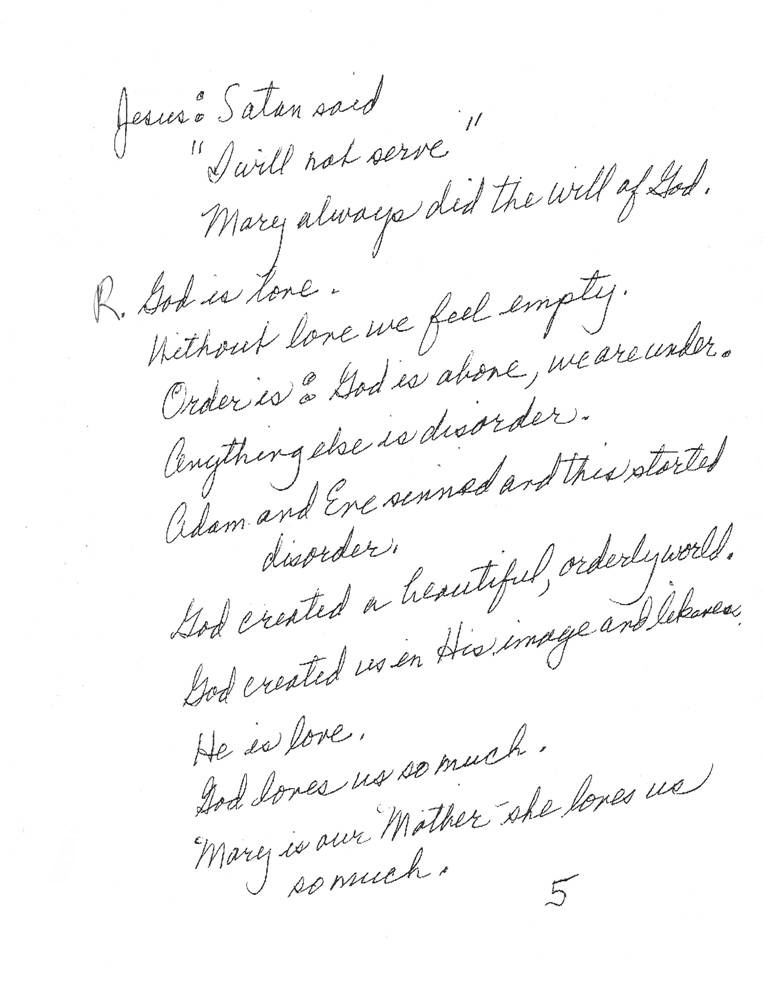 Jesus: Satan said
"I will not serve"
Mary always did the will of God.
R. God is love.
Without love we feel empty.
Order is: God is above, we are under.
Anything else is disorder.
Adam and Eve sinned and this started
disorder.
God created a beautiful, orderly world.
God created us in His image and likeness.
He is love.
God loves us so much.
Mary is our Mother - she loves us
so much.
5